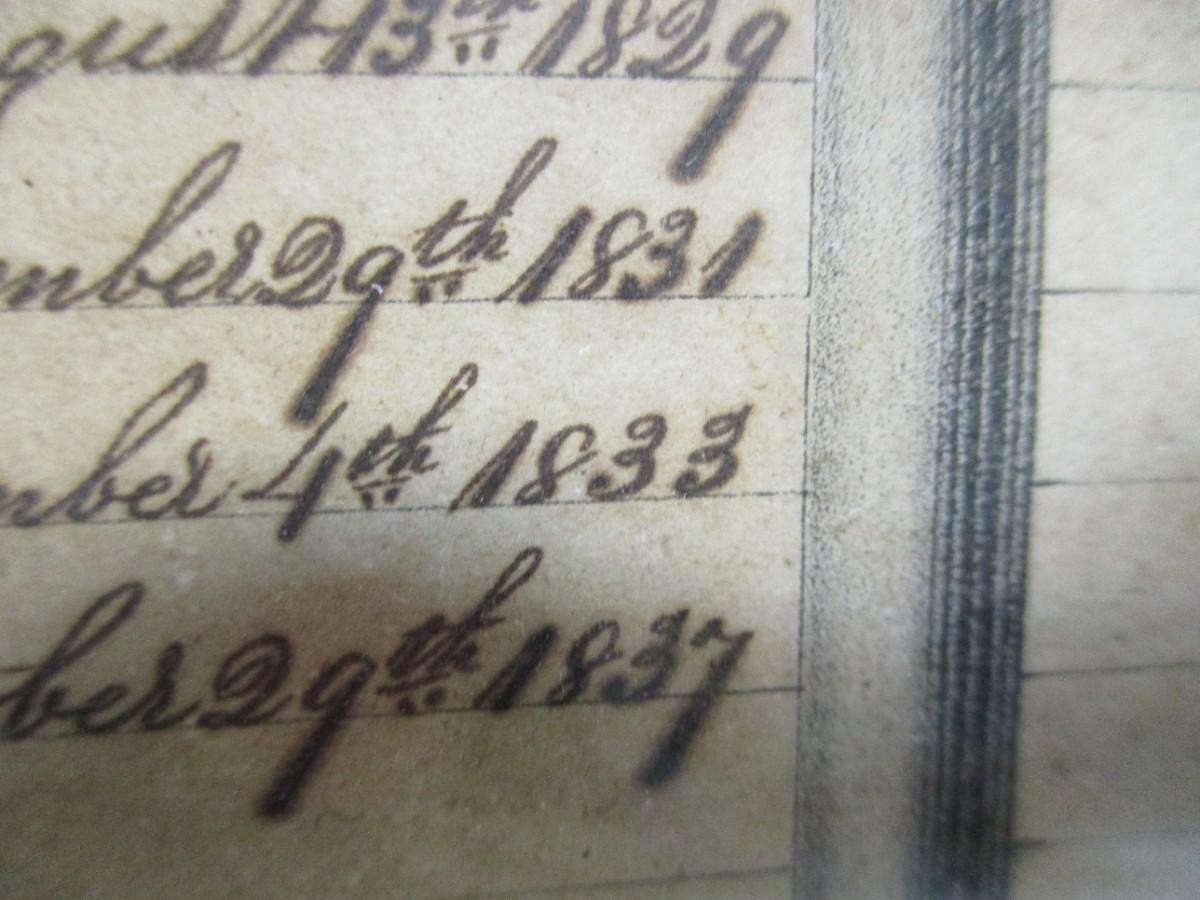 gust 13th 1829
mber 29th 1831
mber 4th 1833
ber 29th 1837